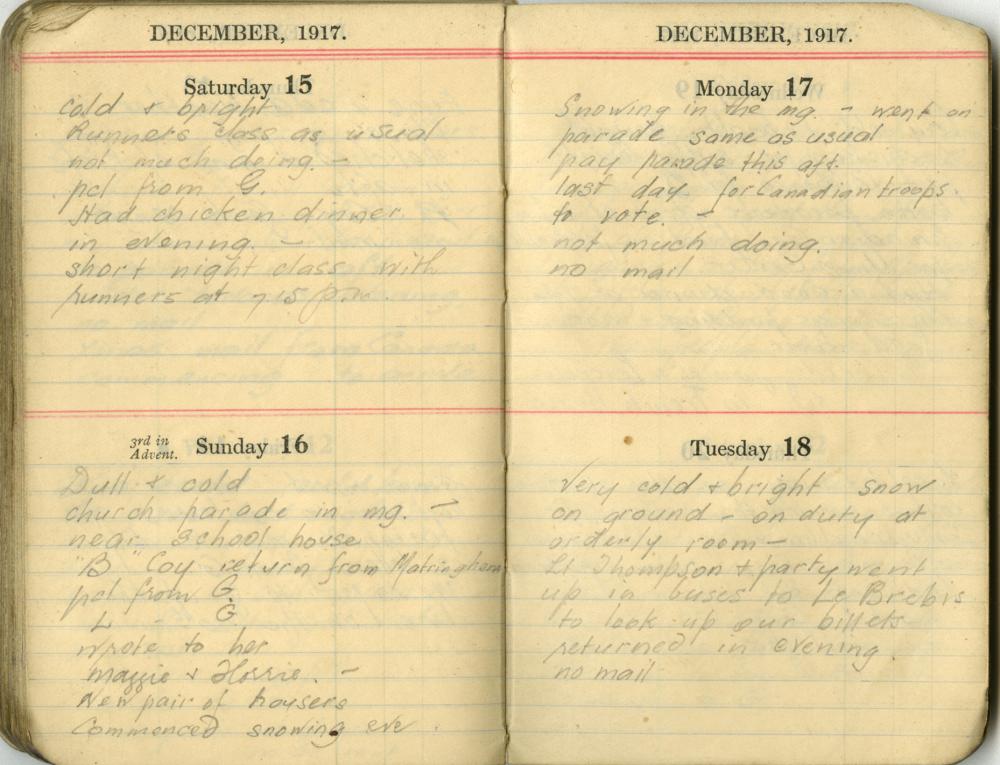 DECEMBER, 1917.
Saturday 15
cold & bright
Runners class as usual
not much doing. -
pcl from G.
Had chicken dinner
in evening. -
short night class with
runners at 7.15 p.m.
3rd in
Advent.
Sunday 16
Dull & cold
church parade in mg. -
near School house
"B" Coy return from Matringhem
pcl from G
L - G
wrote to her
maggie & Horrie. -
New pair of
Commenced snowing eve
DECEMBER, 1917.
Monday 17
Snowing in the mg. - went on
parade same as usual
pay parade this aft.
last day for Canadian troops.
to vote. -
not much doing.
no mail
Tuesday 18
Very cold & bright snow
on ground - on duty at
orderly room -
Lt Thompson & party went
up in buses to Le Brebis
to look up our billets
returned in evening.
no mail